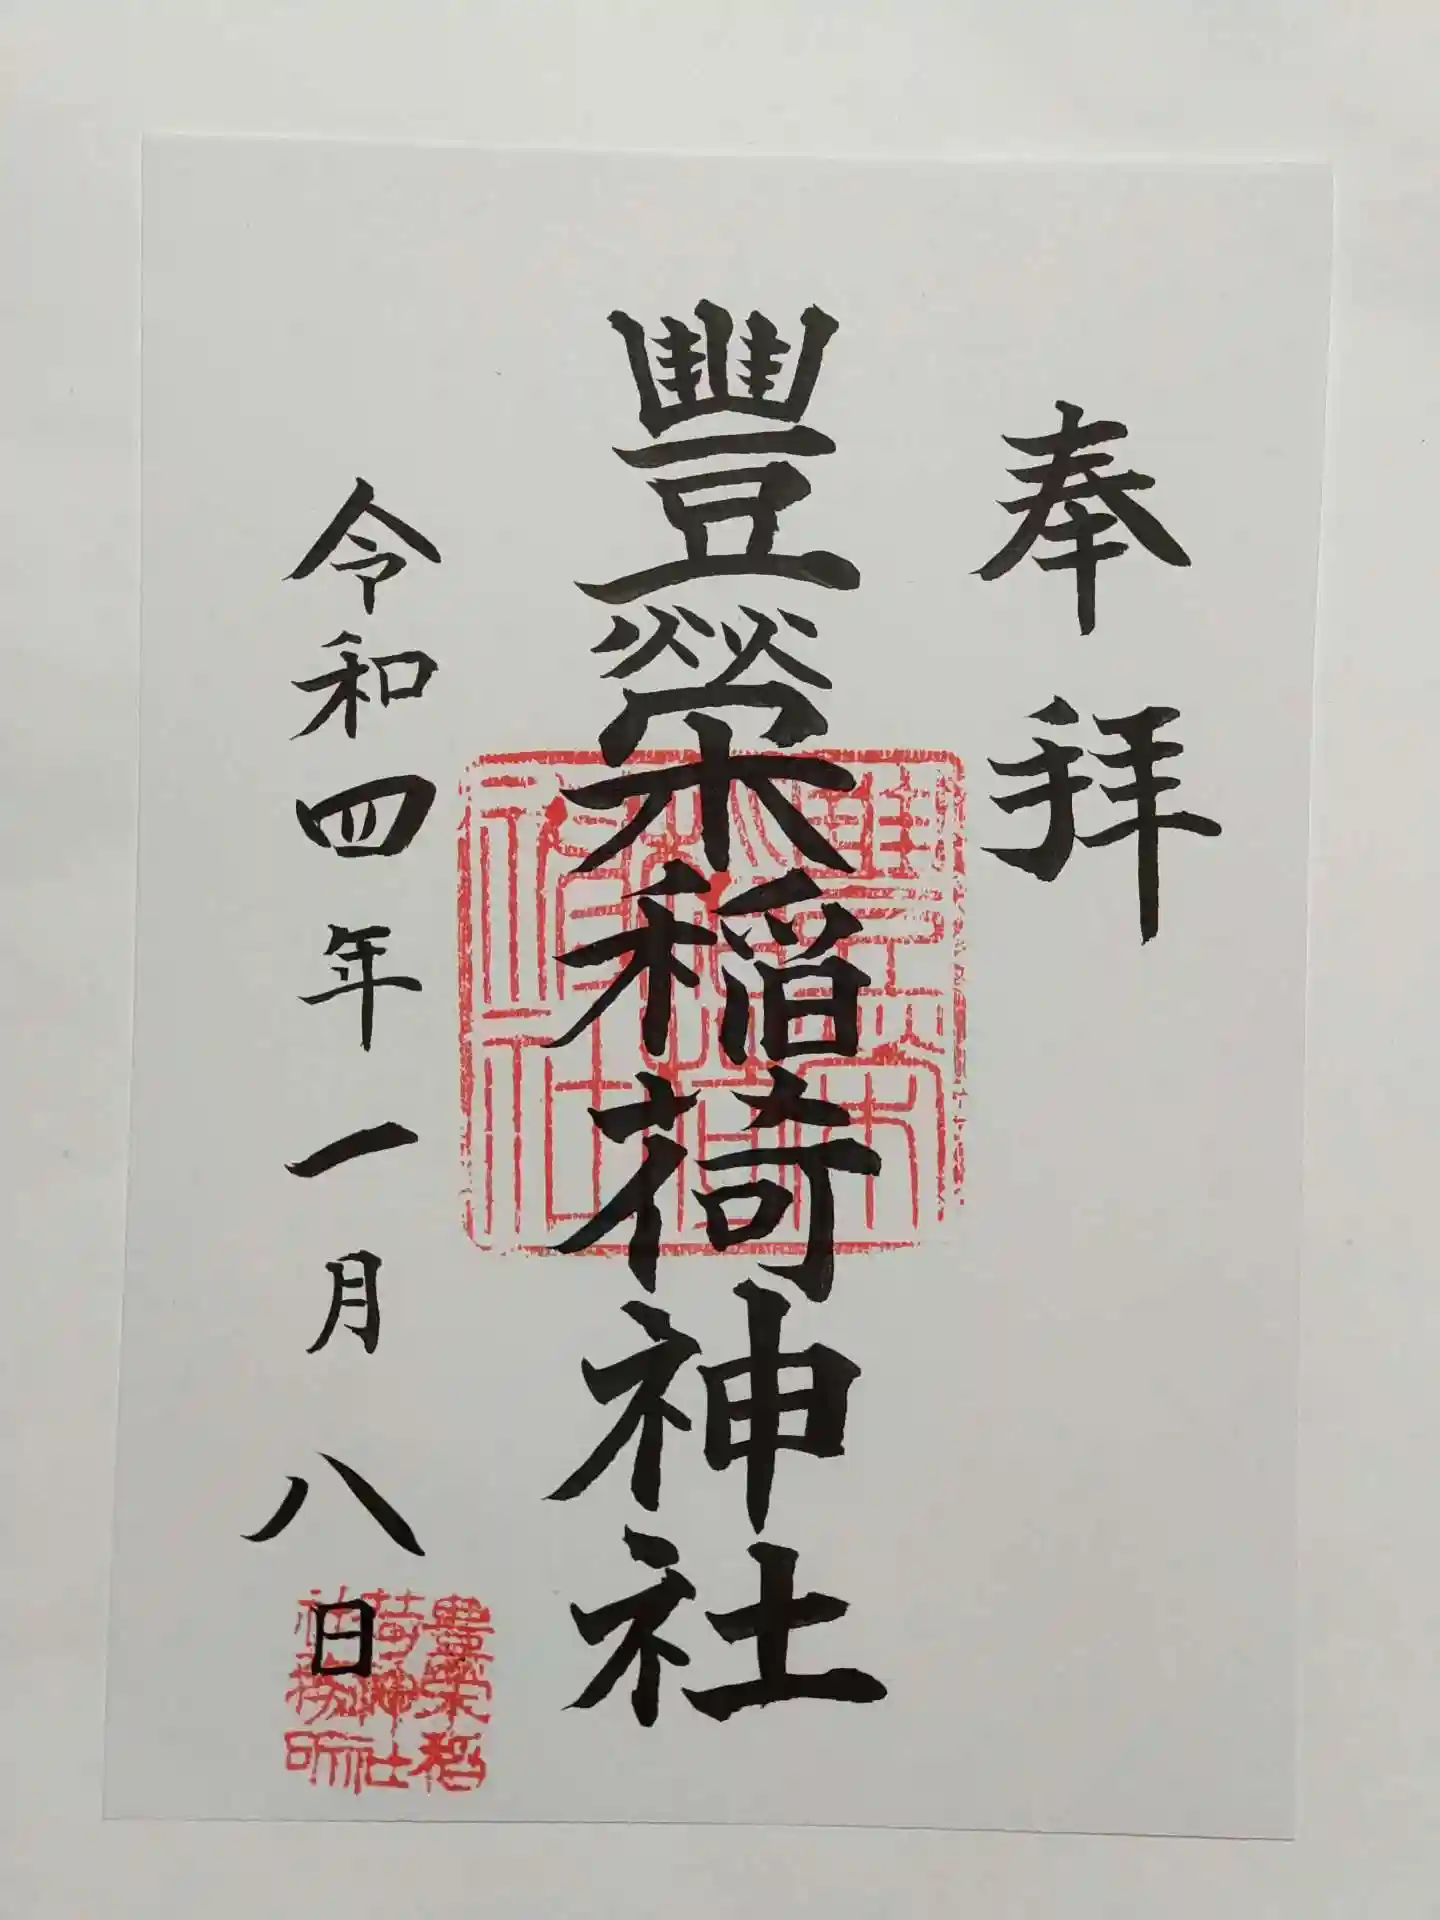 奉拝
豐榮稲荷神社
令和四年一月八日
豊栄稲
荷神社
社務所